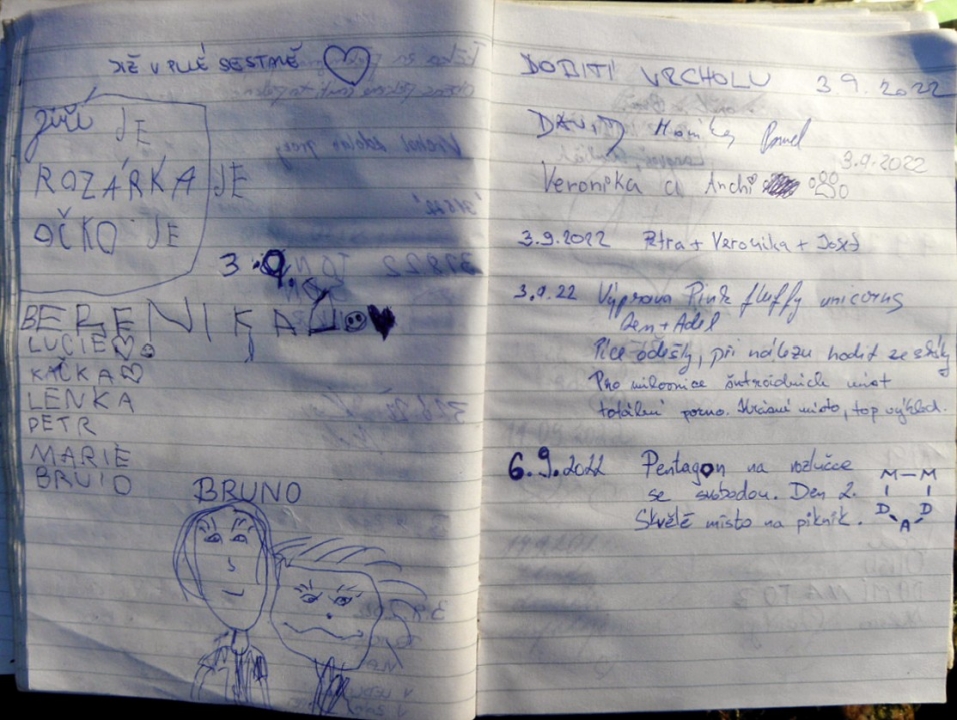 JIŽ V PLNÉ SESTAVĚ
Jiří JE
ROZÁRKA JE
OČKO JE
3.9.
BERENIKA
LUCIE
KAČKA
LENKA
PETR
MARIE
BRUNO
BRUNO
DOBITÍ VRCHOLU 3.9.2022
David Monika Pavel
3.9.2022
Veronika a Archi
3.9.2022 Petra + Veronika + Josef
3.9.22 Výprava Pink fluffy unicorns
Den + Adel
Píce odešly, při nálezu hodit ze skály
Pro milovnice míst
totální porno. Krásné místo, top výhled.
6.9.2022 Pentagon na rozlučce
se svobodou. Den 2.
Skvělé místo na piknik.
M-M
D D
A